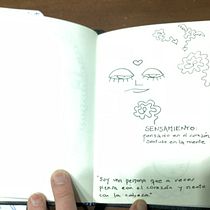 SENSAMIENTO:
pensarlo en el corazón
sentirlo en la mente
"Soy una persona que a veces
piensa con el corazón y siente
con la cabeza"